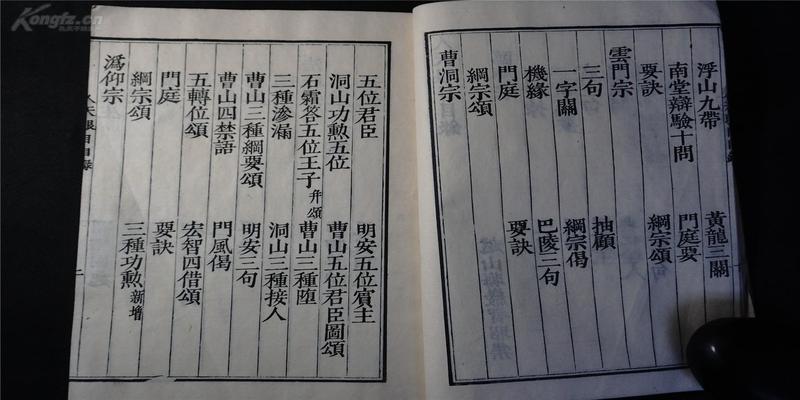 浮山九帶 黃龍三關
南堂辯驗十問 門庭要
要訣 綱宗頌
雲門宗
三句 抽顧
一字關 綱宗偈
機緣 巴陵三句
門庭 要訣
綱宗頌
曹洞宗
五位君臣 明安五位賓主
洞山功勲五位 曹山五位君臣圖頌
石霜答五位王子 并頌 曹山三種墮
三種滲漏 洞山三種接人
曹山三種綱要頌 明安三句
曹山四禁語 門風偈
五轉位頌 宏智四借頌
門庭 要訣
綱宗頌 三種功勲 新增
潙仰宗
人天眼目目錄 二
Kongfz.cn